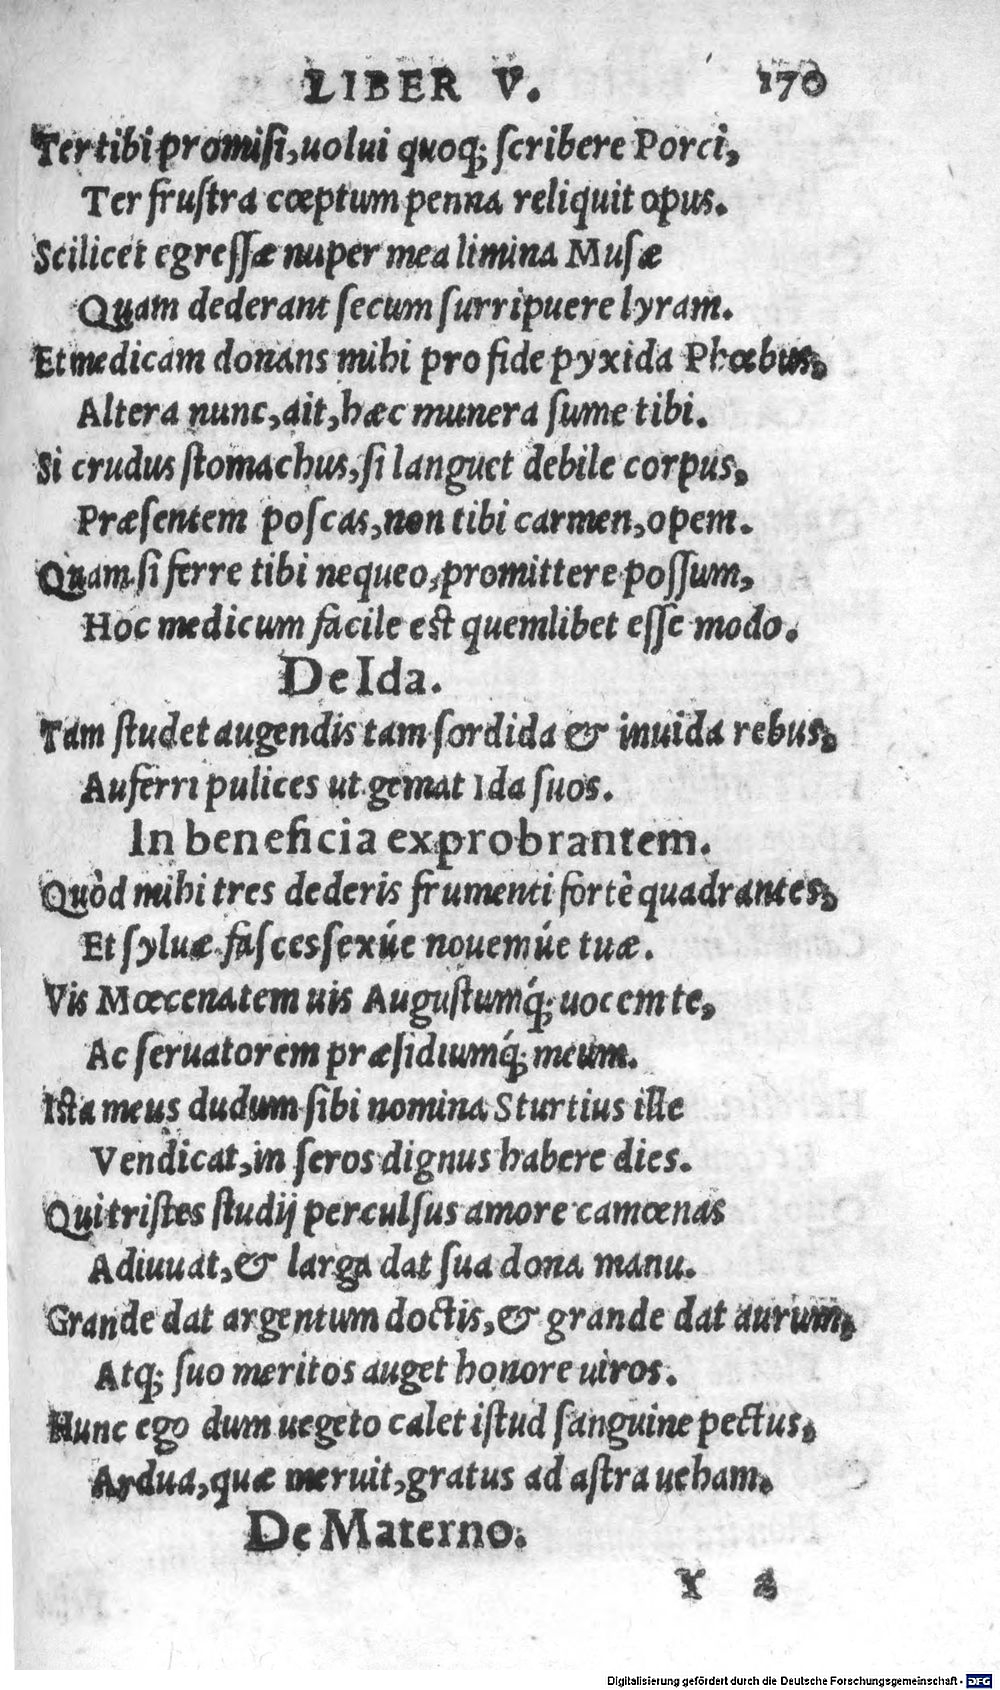 LIBER V. 170
Ter tibi promisi, uolui quoq; scribere Porci,
Ter frustra cœptum penna reliquit opus.
Scilicet egressæ nuper mea limina Musæ
Quam dederant secum surripuere lyram.
Et medicam donans mihi pro fide pyxida Phœbus,
Altera nunc, ait, hæc munera sume tibi.
Si crudus stomachus, si languet debile corpus,
Præsentem poscas, non tibi carmen, opem.
Quam si ferre tibi nequeo, promittere possum,
Hoc medicum facile est quemlibet esse modo.
De Ida.
Tam studet augendis tam sordida & inuida rebus,
Auferri pulices ut gemat Ida suos.
In beneficia exprobrantem.
Quòd mihi tres dederis frumenti fortè quadrantes,
Et syluæ fasces sexúe nouemúe tuæ.
Vis Mœcenatem uis Augustumq́; uocem te,
Ac seruatorem præsidiumq́; meum.
Ista meus dudum sibi nomina Sturtius ille
Vendicat, in seros dignus habere dies.
Qui tristes studij perculsus amore camœnas
Adiuuat, & larga dat sua dona manu.
Grande dat argentum doctis, & grande dat aurum,
Atq; suo meritos auget honore uiros.
Hunc ego dum uegeto calet istud sanguine pectus,
Ardua, quæ meruit, gratus ad astra ueham.
De Materno.
Y 2
Digitalisierung gefördert durch die Deutsche Forschungsgemeinschaft - DFG